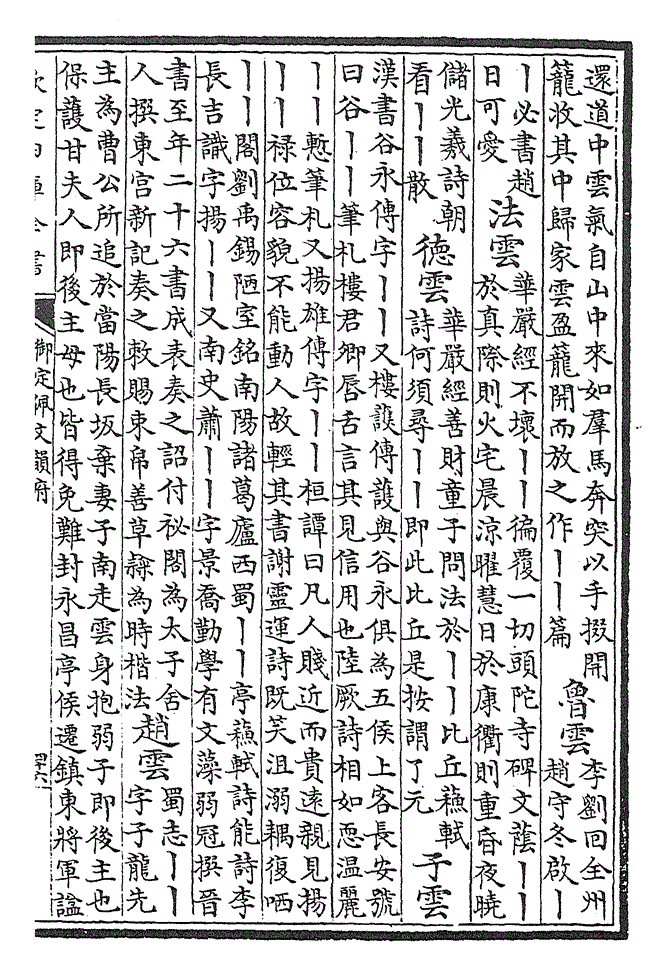 還道中雲氣自山中來如羣馬奔突以手掇開
籠收其中歸家雲盈籠開而放之作丨丨篇
魯雲
李劉回全州
趙守冬啟丨
丨必書趙
日可愛
法雲
華嚴經不壞丨丨徧覆一切頭陀寺碑文蔭丨丨
於真際則火宅晨涼曜慧日於康衢則重昏夜曉
儲光羲詩朝
看丨丨散
德雲
華嚴經善財童子問法於丨丨比丘蘇軾
詩何須尋丨丨即此比丘是按謂了元
子雲
漢書谷永傳字丨丨又樓護傳護與谷永俱為五侯上客長安號
曰谷丨丨筆札樓君卿唇舌言其見信用也陸厥詩相如恧温麗
丨丨慙筆札又揚雄傳字丨丨桓譚曰凡人賤近而貴遠親見揚
丨丨禄位容貌不能動人故輕其書謝靈運詩既笑沮溺耦復哂
丨丨閣劉禹錫陋室銘南陽諸葛廬西蜀丨丨亭蘇軾詩能詩李
長吉識字揚丨丨又南史蕭丨丨字景喬勤學有文藻弱冠撰晉
書至年二十六書成表奏之詔付祕閣為太子舍
人撰東宫新記奏之敕賜束帛善草隸為時楷法
趙雲
蜀志丨丨
字子龍先
主為曹公所追於當陽長坂棄妻子南走雲身抱弱子即後主也
保護甘夫人即後主母也皆得免難封永昌亭侯遷鎮東將軍諡
欽定四庫全書
御定佩文韻府